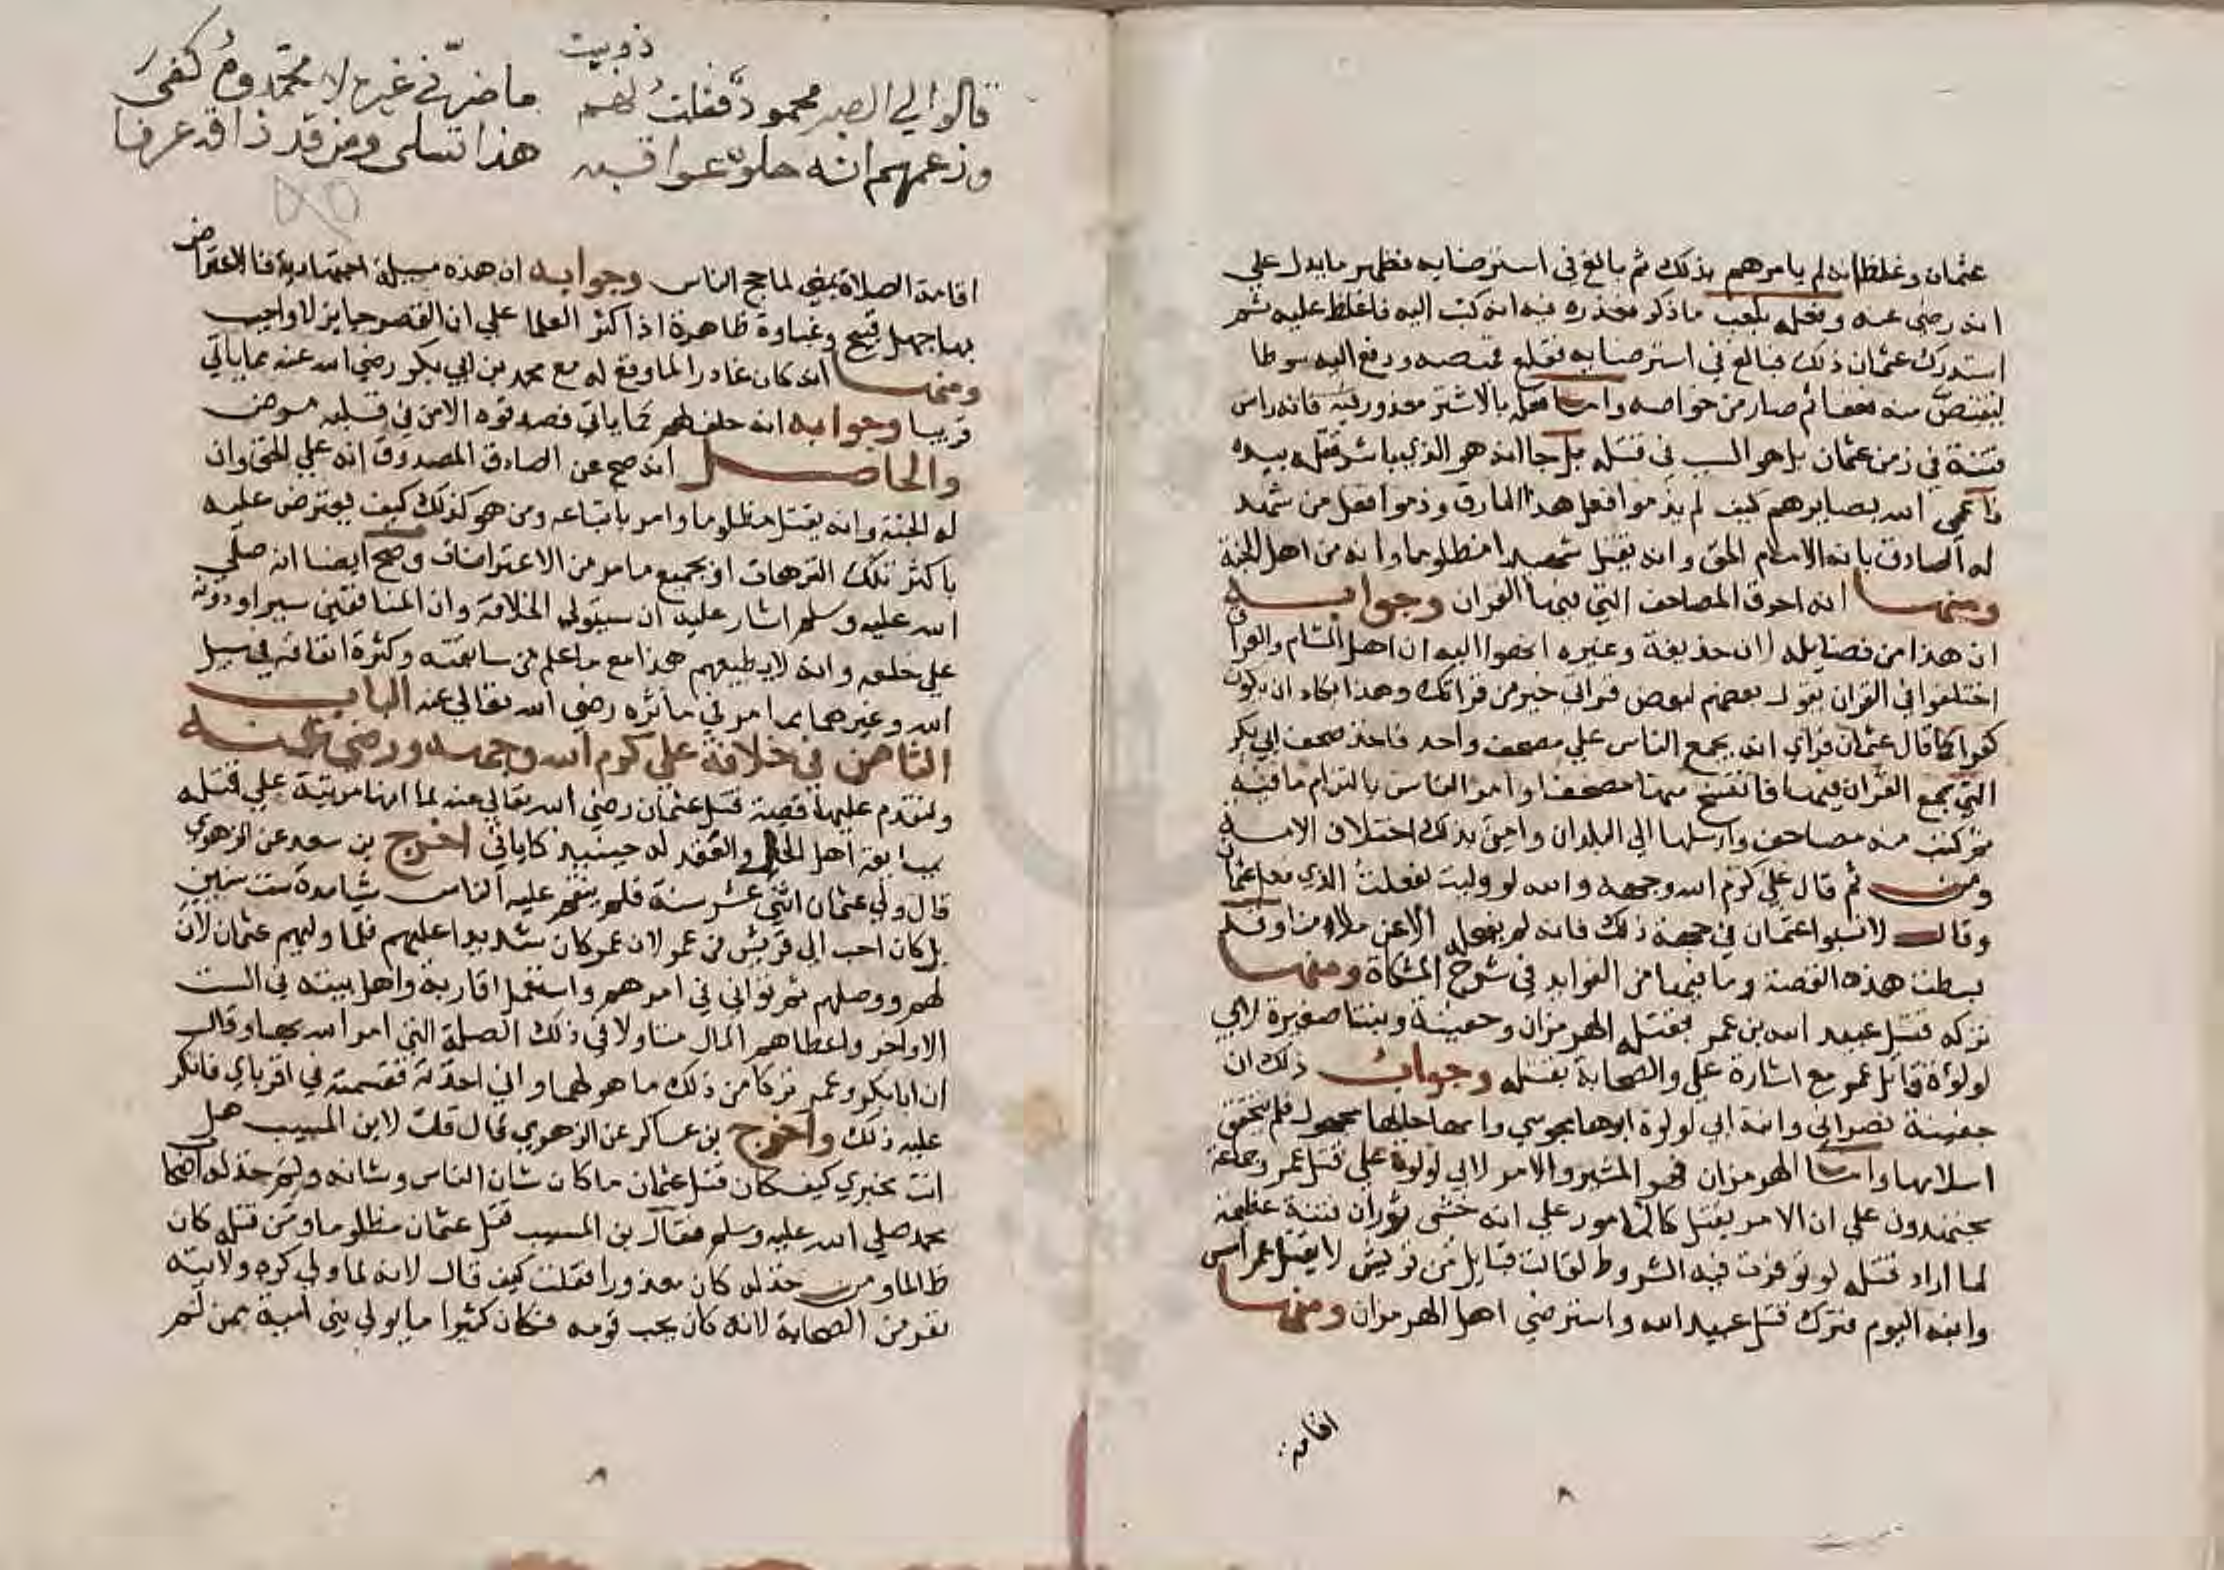 عثمان وغلظ انه لم يامرهم بذلك ثم بالغ في استرضايه فظهر ما يدل علي
انه رضي عنه وفعله بكعب ما ذكر فعذره فيه انه كتب اليه فاغلظ عليه ثم
استدرك عثمان ذلك فبالغ في استرضايه فقلع قميصه ودفع اليه سوطا
ليقتص منه فعفا ثم صار من خواصه واما فعله بالاشتر معذور فيه فانه راس
فتنة في زمن عثمان بل هو السبب في قتله بل جا انه هو الذي باشر قتله بيده
فاعمي الله بصايرهم كيف لم يذموا فعل هذا المارق وذموا فعل من شهد
له الصادق بانه الامام الحق وانه يقتل شهيدا مظلوما وانه من اهل الجنة
ومنها انه احرق المصاحف التي فيها القران وجوابه
ان هذا من فضايله لان حذيفة وغيره انهوا اليه ان اهل الشام والعراق
اختلفوا في القران يقول بعضهم لبعض قراني خير من قرانك وهذا يكاد ان يكون
كفرا كما قال عثمان فراي ان يجمع الناس علي مصحف واحد فاخذ صحف ابي بكر
التي جمع القران فيها فانتسخ منها مصحفا وامر الناس بالتزام ما فيه
ثم كتب منه مصاحف وارسلها الي البلدان وامن بذلك اختلاف الامة
ومن ثم قال علي كرم الله وجهه والله لو وليت لفعلت الذي فعل عثمان
وقال لا تسبوا عثمان في جهة ذلك فانه لم يفعله الا عن ملاء منا وقد
بسطت هذه القصة وما فيها من الفوايد في شرح المشكاة ومنها
تركه قتل عبيد الله بن عمر بقتله الهرمزان وجفينة وبنتا صغيرة لابي
لولؤة قاتل عمر مع اشارة علي والصحابة بقتله وجواب ذلك ان
جفينة نصراني وابنة ابي لولوة ابوها مجوسي وامها حالها مجهول فلم يتحقق
اسلامها واما الهرمزان فهو المشير والامر لابي لولوة علي قتل عمر وجماعة
مجتهدون علي ان الامر يقتل كالمامور علي انه خشي ثوران فتنة عظيمة
لما اراد قتله لو توفرت فيه الشروط لقالت قبايل من قريش لا يقتل عمر امس
وابنه اليوم فترك قتل عبيد الله واسترضي اهل الهرمزان ومنها
اقامة
٨
ذو بيت
قالوا الي الصبر محمود فقلت لهم ما ضرني غير لا محمدوم كفى
وزعمهم انه حلو عواقبه هذا تسلى ومن قد ذاقه عرفا
اقامة الصلاة بمني لما حج الناس وجوابه ان هذه مسيلة اجتهادية فالاعتراض
بها جهل قبيح وغباوة ظاهرة اذ اكثر العلما علي ان القصر جايز لا واجب
ومنها انه كان غادرا لما وقع له مع محمد بن ابي بكر رضي الله عنه مما ياتي
قريبا وجوابه انه حلف لهم كما ياتي فصدقوه الا من في قلبه مرض
والحاصل انه صح عن الصادق المصدوق انه علي الحق وان
له الجنة وانه يقتل مظلوما وامر باتباعه ومن هو كذلك كيف يعترض عليه
باكثر تلك الترهات او بجميع ما مر من الاعتراضات وصح ايضا انه صلي
الله عليه وسلم اشار عليه ان سيتولي الخلافة وان المنافقين سيراودونه
علي خلعه وانه لا يطيعهم هذا مع ما علم من سابقته وكثرة انفاقه في سبيل
الله وغيرهما مما مر في ماثره رضي الله تعالي عنه الباب
الثامن في خلافة علي كرم الله وجهه ورضي عنه
ولنقدم عليها قصة قتل عثمان رضي الله تعالي عنه لما انها مرتبة علي قتله
بمبايعة اهل الحل والعقد له حينيذ كما ياتي اخرج بن سعد عن الزهري
قال ولي عثمان اثنتي عشر سنة فلم ينقم عليه الناس شيا مدة ست سنين
بل كان احب الي قريش من عمر لان عمر كان شديدا عليهم فلما وليهم عثمان لان
لهم ووصلهم ثم تواني في امرهم واستعمل اقاربه واهل بيته في الست
الاواخر واعطاهم المال متاولا في ذلك الصلة التي امر الله بها وقال
ان ابا بكر وعمر تركا من ذلك ما هو لهما واني اخذته فقسمته في اقرباي فانكر
عليه ذلك واخرج بن عساكر عن الزهري قال قلت لابن المسيب هل
انت مخبري كيف كان قتل عثمان ما كان شان الناس وشانه ولم خذله اصحاب
محمد صلي الله عليه وسلم فقال بن المسيب قتل عثمان مظلوما ومن قتله كان
ظالما ومن خذله كان معذورا فقلت كيف قال لانه لما ولي كره ولايته
نفر من الصحابة لانه كان يحب قومه فكان كثيرا ما يولي بني امية ممن لم
٨